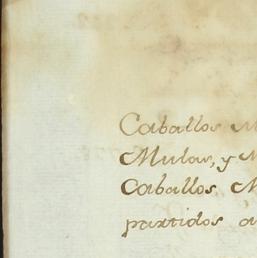 Caballos M
Mulas, y M
Caballos, M
partidos a